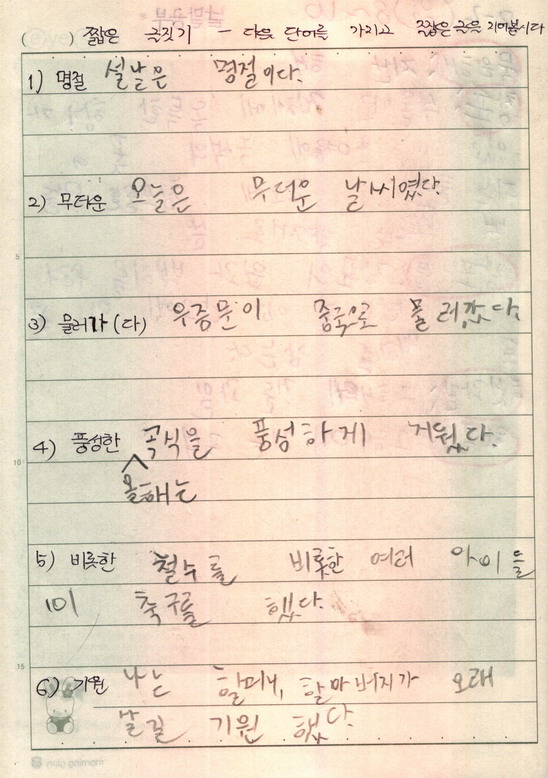 짧은 글짓기 - 다음 단어를 가지고 짧은 글을 지어봅시다
1) 명절 설날은 명절이다.
2) 무더운 오늘은 무더운 날씨였다.
3) 물러가(다) 우중문이 중국으로 물러갔다.
4) 풍성한 곡식을 풍성하게 거뒀다.
올해는
5) 비롯한 철수를 비롯한 여러 아이들
이 축구를 했다.
6) 기원 나는 할머니, 할아버지가 오래
살길 기원했다.
morning glory